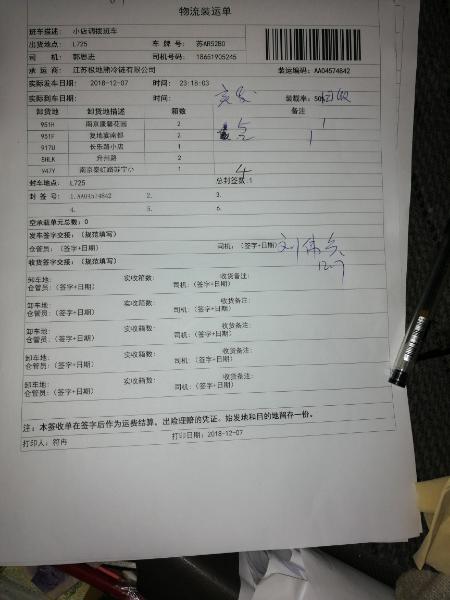 物流装运单
班车描述: 小店调拨班车
出货地点: L725 车 牌 号: 苏AR52B0
司 机: 郭思志 司机号码: 18651905245
承 运 商: 江苏极地熊冷链有限公司 装运编码: AA04574842
实际发车日期: 2018-12-07 时间: 23:18:03 实发
实际到车日期: 时间: 装载率: 50% 回收
卸货地 卸货地描述 箱数 备注
951H 南京康馨花园 2 1
951F 复地宴南都 2 1
917U 长乐路小店 1
8HLK 升州路 2
947Y 南京秦虹路苏宁小 1 4
封车地点: L725 总封签数:1
封 签 号: 1.AA04574842 2. 3.
4. 5. 6.
空承载单元总数: 0
发车签字交接: (规范填写)
仓管员: (签字+日期) 司机: (签字+日期) 刘伟兵
12.7
收货签字交接: (规范填写)
卸车地: 实收箱数: 收货备注:
仓管员: (签字+日期) 司机: (签字+日期)
卸车地: 实收箱数: 收货备注:
仓管员: (签字+日期) 司机: (签字+日期)
卸车地: 实收箱数: 收货备注:
仓管员: (签字+日期) 司机: (签字+日期)
卸车地: 实收箱数: 收货备注:
仓管员: (签字+日期) 司机: (签字+日期)
卸车地: 实收箱数: 收货备注:
仓管员: (签字+日期) 司机: (签字+日期)
注: 本签收单在签字后作为运费结算, 出险理赔的凭证, 始发地和目的地留存一份。
打印人: 符冉 打印日期: 2018-12-07